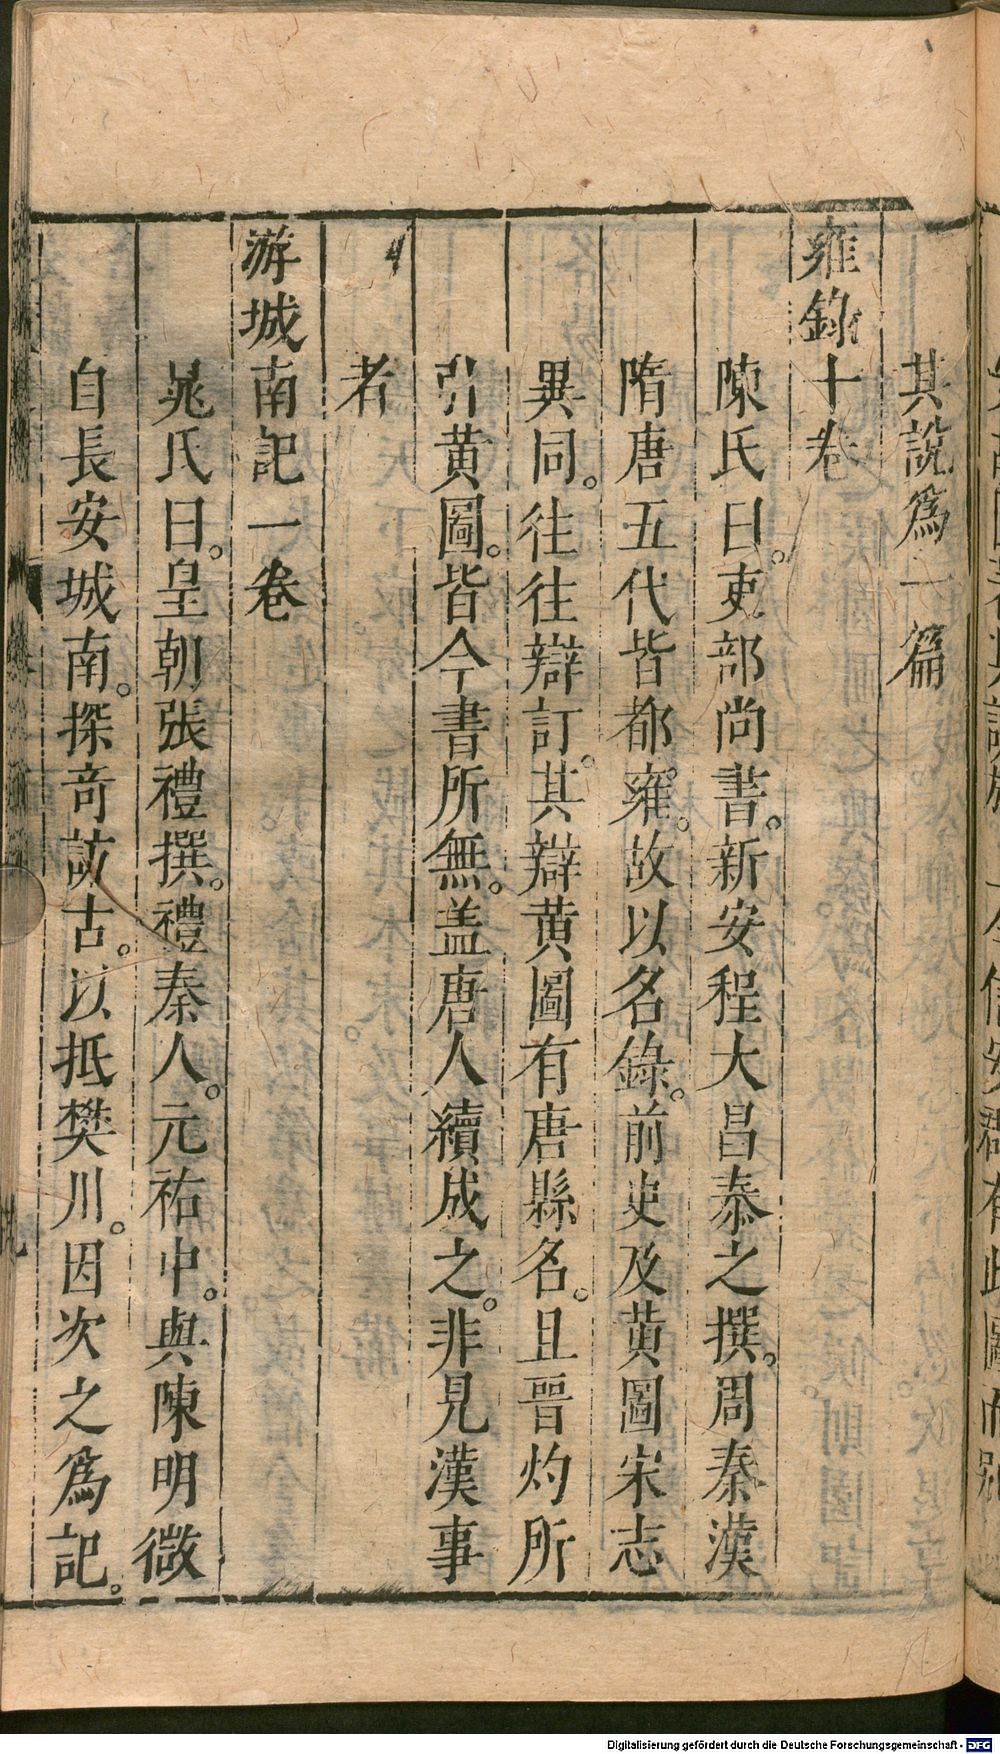 其說爲一篇
雍錄十卷
陳氏曰。吏部尚書。新安程大昌泰之撰。周秦漢
隋唐五代皆都雍。故以名錄。前史及黄圖宋志
異同。往往辯訂。其辯黄圖有唐縣名。且晉灼所
引黄圖。皆今書所無。盖唐人續成之。非見漢事
者
游城南記一卷
晁氏曰。皇朝張禮撰。禮秦人。元祐中。與陳明微
自長安城南。探奇訪古。以抵樊川。因次之爲記。
Digitalisierung gefördert durch die Deutsche Forschungsgemeinschaft - DFG